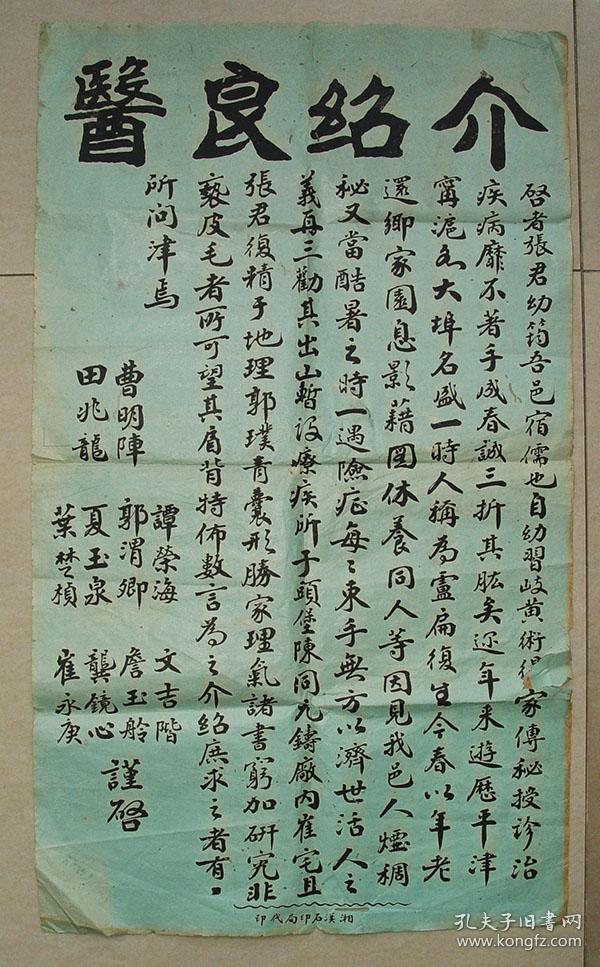 介紹良醫
啓者張君幼筠吾邑宿儒也自幼習岐黄術得家傳秘授診治
疾病靡不著手成春誠三折其肱矣近年来遊歷平津
甯滬各大埠名盛一時人稱為盧扁復生今春以年老
還鄉家園息影藉圖休養同人等因見我邑人煙稠
秘又當酷暑之時一遇險症每〻束手無方以濟世活人之
義再三勸其出山暫設療疾所于頭堡陳同九鑄廠内崔宅且
張君復精于地理郭璞青囊形勝家理氣諸書窮加研究非
褻皮毛者所可望其肩背特佈數言為之介紹庶求之者有〻
所问津焉
曹明陣
田兆龍
譚榮海
郭渭卿
夏玉泉
葉楚楨
文吉階
詹玉舲
龔鏡心
崔永庚
謹啓
湘漢石印局代印
孔夫子旧書网
www.kongfz.com